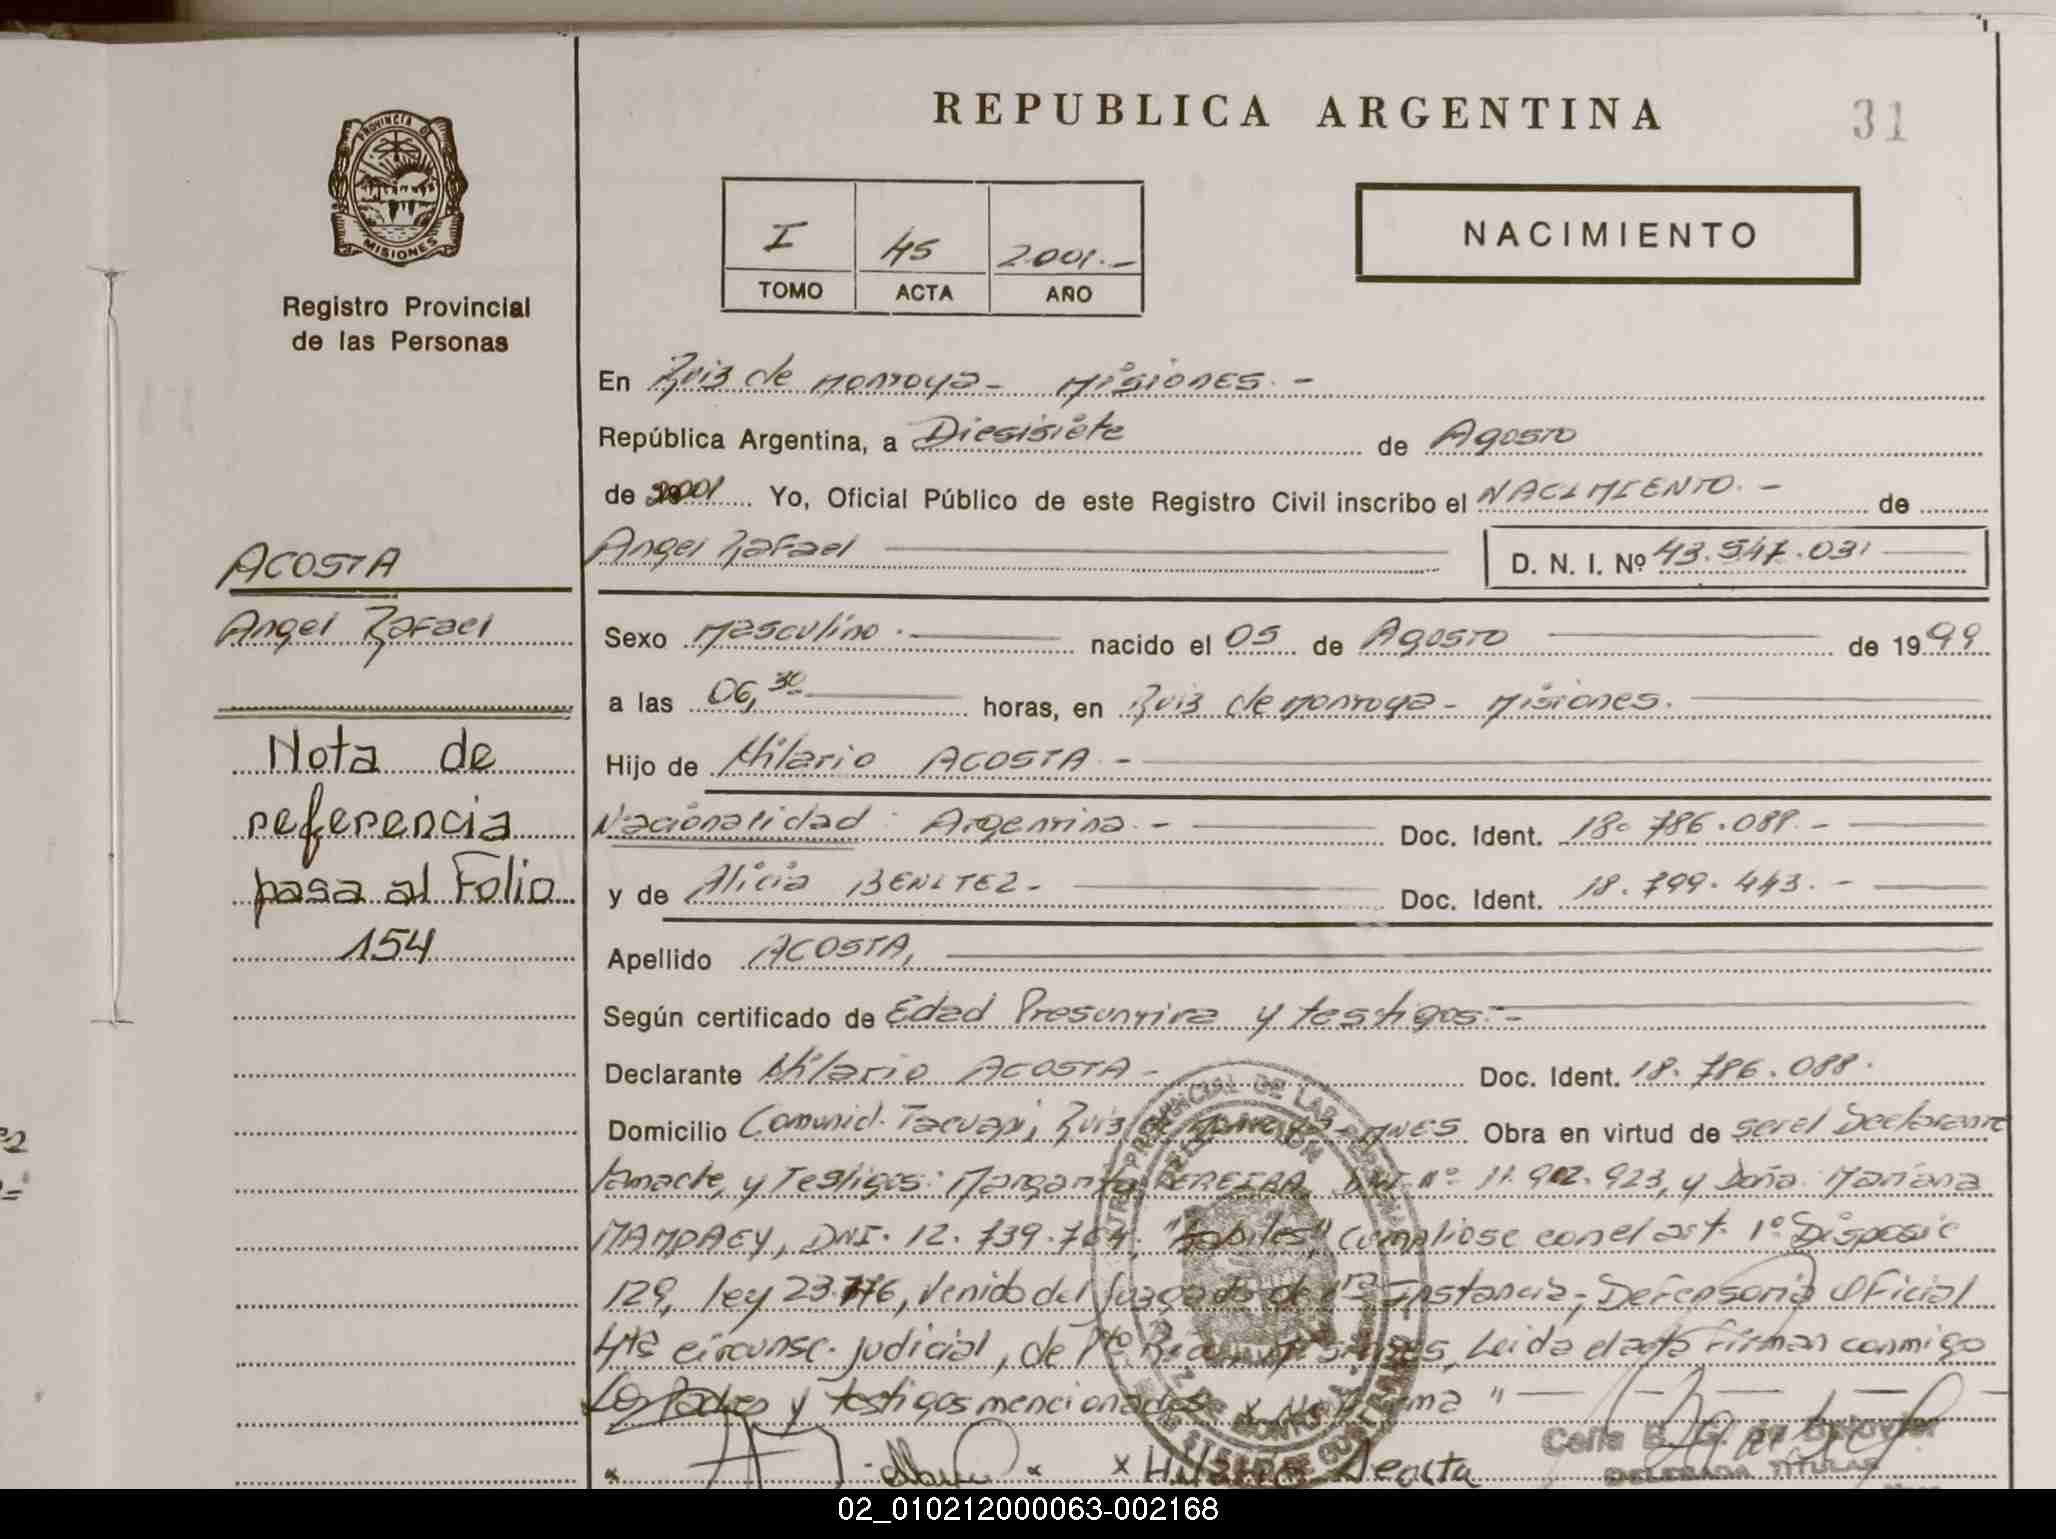 REPUBLICA ARGENTINA
31
PROVINCIA DE
MISIONES
Registro Provincial
de las Personas
I 45 2.001.-
TOMO ACTA AÑO
NACIMIENTO
En Ruiz de Montoya - Misiones. -
República Argentina, a Diesisiete de Agosto
de 2001 Yo, Oficial Público de este Registro Civil inscribo el NACIMIENTO. - de
Angel Rafael D. N. I. Nº 43.547.031
ACOSTA
Angel Rafael
Nota de
referencia
pasa al Folio
154
Sexo Masculino. nacido el 05 de Agosto de 1999
a las 06,30 horas, en Ruiz de Montoya - Misiones.
Hijo de Hilario ACOSTA -
Nacionalidad: Argentina. - Doc. Ident. 18.786.088. -
y de Alicia BENITEZ - Doc. Ident. 18.799.443. -
Apellido ACOSTA,
Según certificado de Edad Presuntiva y testigos. -
Declarante Hilario ACOSTA - Doc. Ident. 18.786.088.
Domicilio Comunid. Tacuapi, Ruiz de Montoya - MNES Obra en virtud de ser el Declarante
y Testigos: Margarita PEREIRA, DNI. Nº 11.902.923, y Doña Mariana
DNI. 12.739.764, "Habiles", Cumpliose con el art. 1º Disposic
129, ley 23.776, Venido del Juzgado de 1ra Instancia, Defensoria Oficial
4ta circunsc. judicial, de Pto Rico, Misiones, Leida el acta Firman conmigo
Los Padres y testigos mencionados
x Hilario Acosta
DELEGADA TITULAR
02_010212000063-002168